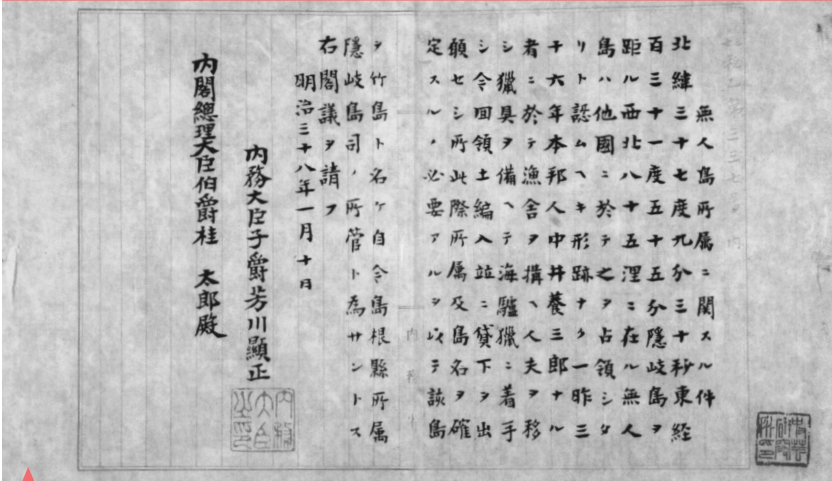 無人島所属ニ関スル件
北緯三十七度九分三十秒東経
百三十一度五十五分隠岐島ヲ
距ル西北八十五浬ニ在ル無人
島ハ他國ニ於テ之ヲ占領シタ
リト認ムヘキ形跡ナク一昨三
十六年本邦人中井養三郎ナル
者ニ於テ漁舎ヲ構ヘ人夫ヲ移
シ獵具ヲ備ヘテ海驢獵ニ着手
シ今回領土編入並ニ貸下ヲ出
願セシ所此際所属及島名ヲ確
定スルノ必要アルヲ以テ該島
ヲ竹島ト名ケ自今島根縣所属
隠岐島司ノ所管ト為サントス
右閣議ヲ請フ
明治三十八年一月十日
内務大臣子爵芳川顯正
内務大臣之印
内閣總理大臣伯爵桂 太郎殿